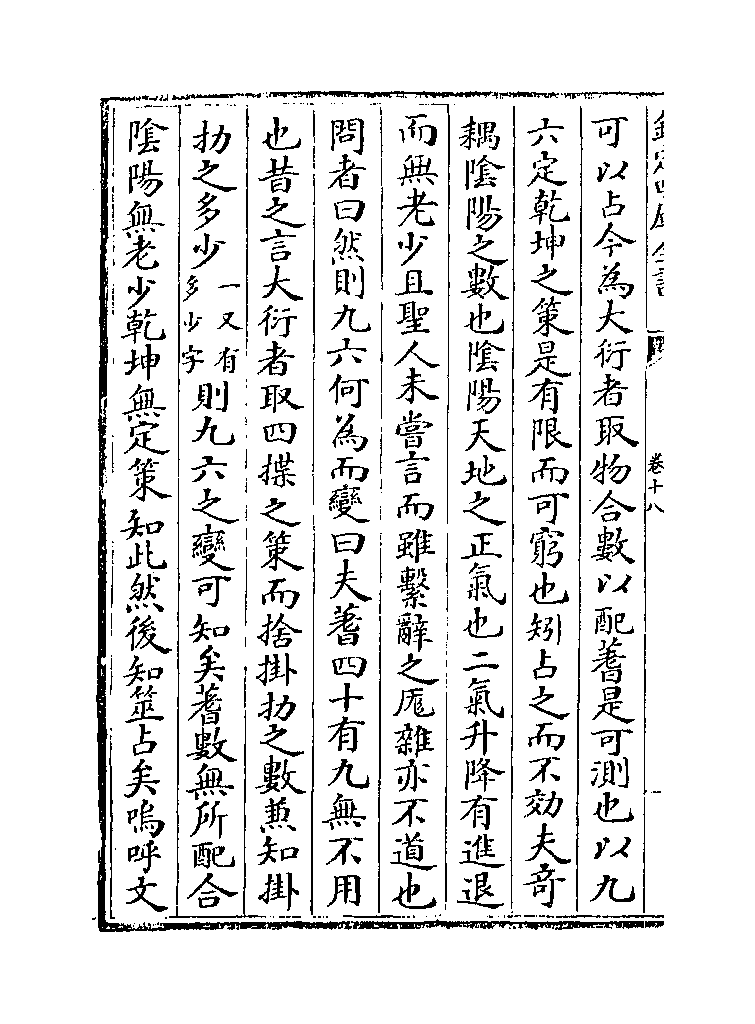 可以占今為大衍者取物合數以配蓍是可測也以九
六定乾坤之策是有限而可窮也矧占之而不効夫奇
耦陰陽之數也陰陽天地之正氣也二氣升降有進退
而無老少且聖人未嘗言而雖繫辭之厖雜亦不道也
問者曰然則九六何為而變曰夫蓍四十有九無不用
也昔之言大衍者取四揲之策而捨掛扐之數兼知掛
扐之多少一又有多少字則九六之變可知矣蓍數無所配合
陰陽無老少乾坤無定策知此然後知筮占矣嗚呼文
卷十八